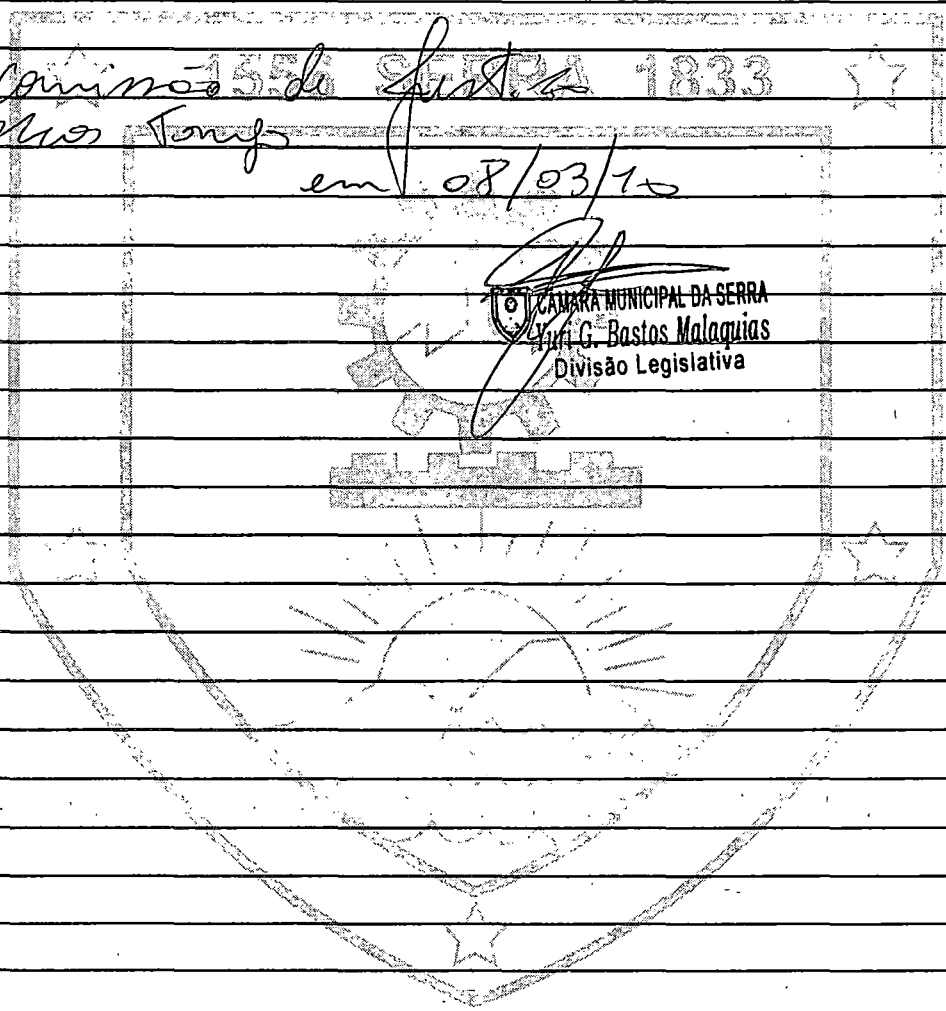 1556 SERRA 1833
Comissão de Justiça
em 08/03/10
CÂMARA MUNICIPAL DA SERRA
Yuri G. Bastos Malaquias
Divisão Legislativa